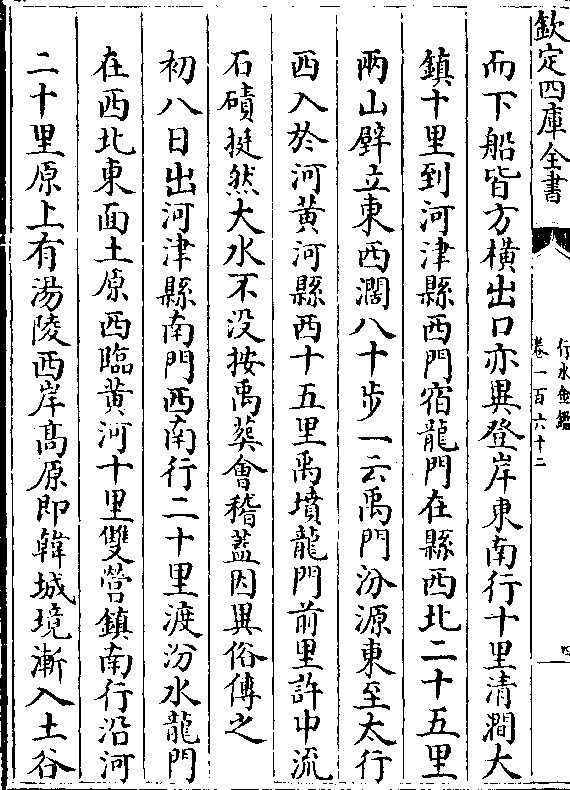 欽定四庫全書
行水金鑑
卷一百六十二
四
而下船皆方橫出口亦異登岸東南行十里清澗大
鎮十里到河津縣西門宿龍門在縣西北二十五里
兩山壁立東西濶八十步一云禹門汾源東至太行
西入於河黄河縣西十五里禹墳龍門前里許中流
石磧挺然大水不没按禹葬會稽蓋因異俗傳之
初八日出河津縣南門西南行二十里渡汾水龍門
在西北東面土原西臨黄河十里雙營鎮南行沿河
二十里原上有湯陵西岸髙原即韓城境漸入土谷